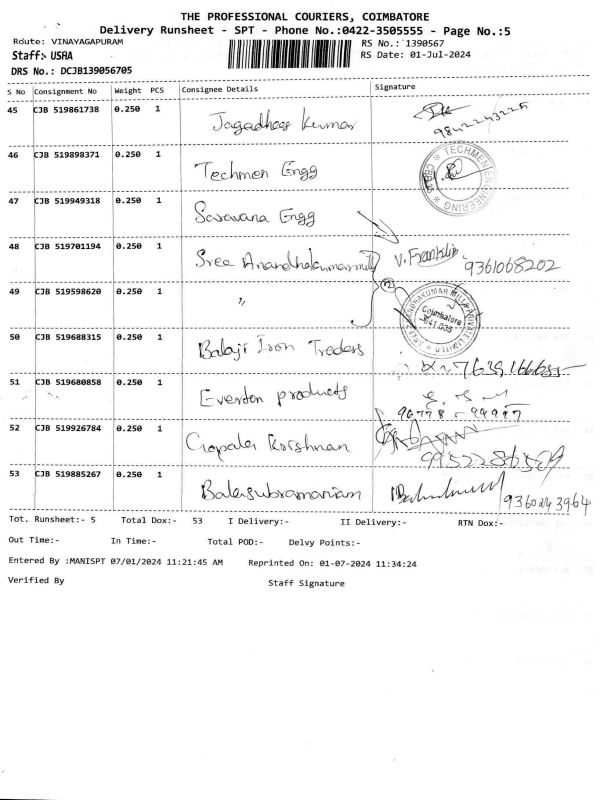 THE PROFESSIONAL COURIERS, COIMBATORE
Delivery Runsheet - SPT - Phone No.:0422-3505555 - Page No.:5
Route: VINAYAGAPURAM
RS No.: 1390567
Staff: USHA
RS Date: 01-Jul-2024
DRS No.: DCJB139056705
S No Consignment No Weight PCS Consignee Details Signature
45 CJB 519861738 0.250 1 Jagadhees Kumar 9842243225
46 CJB 519898371 0.250 1 Techmen Engg TECHMEN ENGINEERING
47 CJB 519949318 0.250 1 Saravana Engg
48 CJB 519701194 0.250 1 Sree Anandhakumar mill V. Franklin 9361068202
49 CJB 519598620 0.250 1 〃 ② Coimbatore 641 035
50 CJB 519688315 0.250 1 Balaji Iron Treders
51 CJB 519680858 0.250 1 Everton products
52 CJB 519926784 0.250 1 Gopala Krishnan
53 CJB 519885267 0.250 1 Balasubramaniam
Tot. Runsheet:- 5 Total Dox:- 53 I Delivery:- II Delivery:- RTN Dox:-
Out Time:- In Time:- Total POD:- Delvy Points:-
Entered By :MANISPT 07/01/2024 11:21:45 AM Reprinted On: 01-07-2024 11:34:24
Verified By Staff Signature